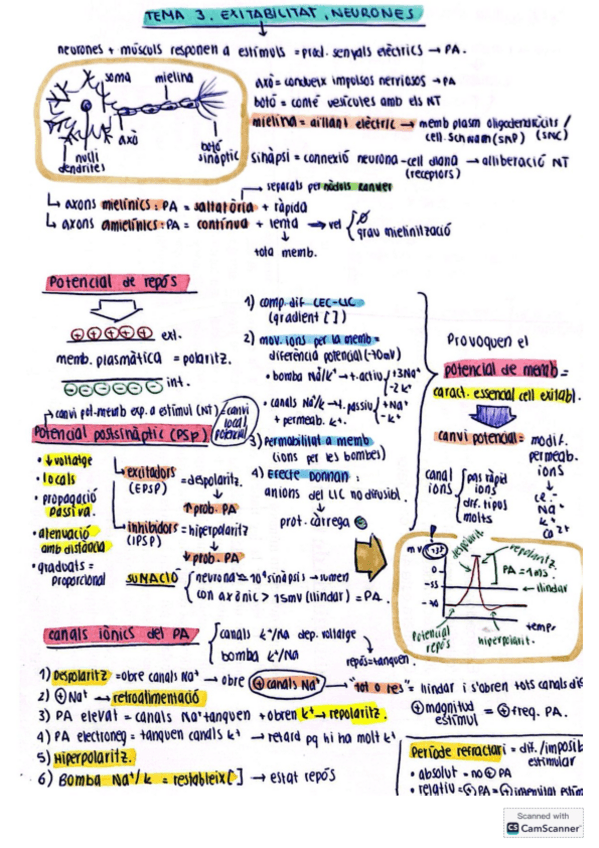 TEMA 3. EXITABILITAT, NEURONES
neurones + músculs responen a estímuls = prod. senyals elèctrics → PA.
soma
mielina
axó
nucli
dendrites
botó sinàptic
axó = condueix impulsos nerviosos → PA
botó = conté vesícules amb els NT
mielina = aïllant elèctric → memb plasm oligodendròcits /
cell. Schwann (SNP) (SNC)
sinàpsi = connexió neurona - cell diana → alliberació NT
(receptors)
separats per nòduls Ranvier
↳ axons mielínics: PA = saltatòria + ràpida
↳ axons amielínics: PA = contínua + lenta → vel { Ø
grau mielinització
tota memb.
Potencial de repòs
⊕⊕⊕⊕⊕ ext.
memb. plasmàtica = polaritz.
⊖⊖⊖⊖⊖ int.
1) comp. dif LEC-LIC
(gradient [ ])
2) mov. ions per la memb =
diferència potencial (-70mV)
• bomba Na⁺/K⁺ → t. actiu { +3Na⁺
-2K⁺
• canals Na⁺/K → t. passiu { +Na⁺
+ permeab. K⁺. -K⁺
3) Permabilitat a memb
(ions per les bombes)
4) Efecte Donnan:
anions del LIC no difusibl.
prot. càrrega ⊖
Provoquen el
potencial de memb =
caract. essencial cell exitabl.
canvi potencial = modif.
permeab.
ions
canal ions { pas ràpid ions
dif. tipus
molts
Cl⁻
Na⁺
K⁺
Ca²⁺
canvi pot. memb exp. a estímul (NT) = canvi local potencial
Potencial postsinàptic (PSP)
• ↓ voltatge
• locals
• propagació passiva.
• atenuació amb distància
• graduats = proporcional
excitadors (EPSP) = despolaritz.
↑ prob. PA
inhibidors (IPSP) = hiperpolaritz
↓ prob. PA
SUMACIÓ { neurona = 10⁴ sinàpsis → sumen
con axònic > 15mV (llindar) = PA.
mV
0
-55
-70
despolarit.
repolaritz.
PA = 1ms.
llindar
temps
Potencial repòs
hiperpolarit.
canals iònics del PA { canals K⁺/Na dep. voltatge
bomba K⁺/Na
repòs = tanquen.
1) Despolaritz = obre canals Na⁺ → obre ⊕ canals Na⁺ → "tot o res" = llindar i s'obren tots canals
2) ⊕ Na⁺ → retroalimentació
⊕ magnitud estímul = ⊕ freq. PA.
3) PA elevat = canals Na⁺ tanquen + obren K⁺ → repolaritz.
4) PA electroneg = tanquen canals K⁺ → retard pq hi ha molt K⁺
5) Hiperpolaritz.
6) Bomba Na⁺/K = restableix [ ] → estat repòs
Període refractari = dif. /imposib
estimular
• absolut = no ⊕ PA
• relatiu = ⊕ PA = ⊕ intensitat estím
Scanned with
CS CamScanner